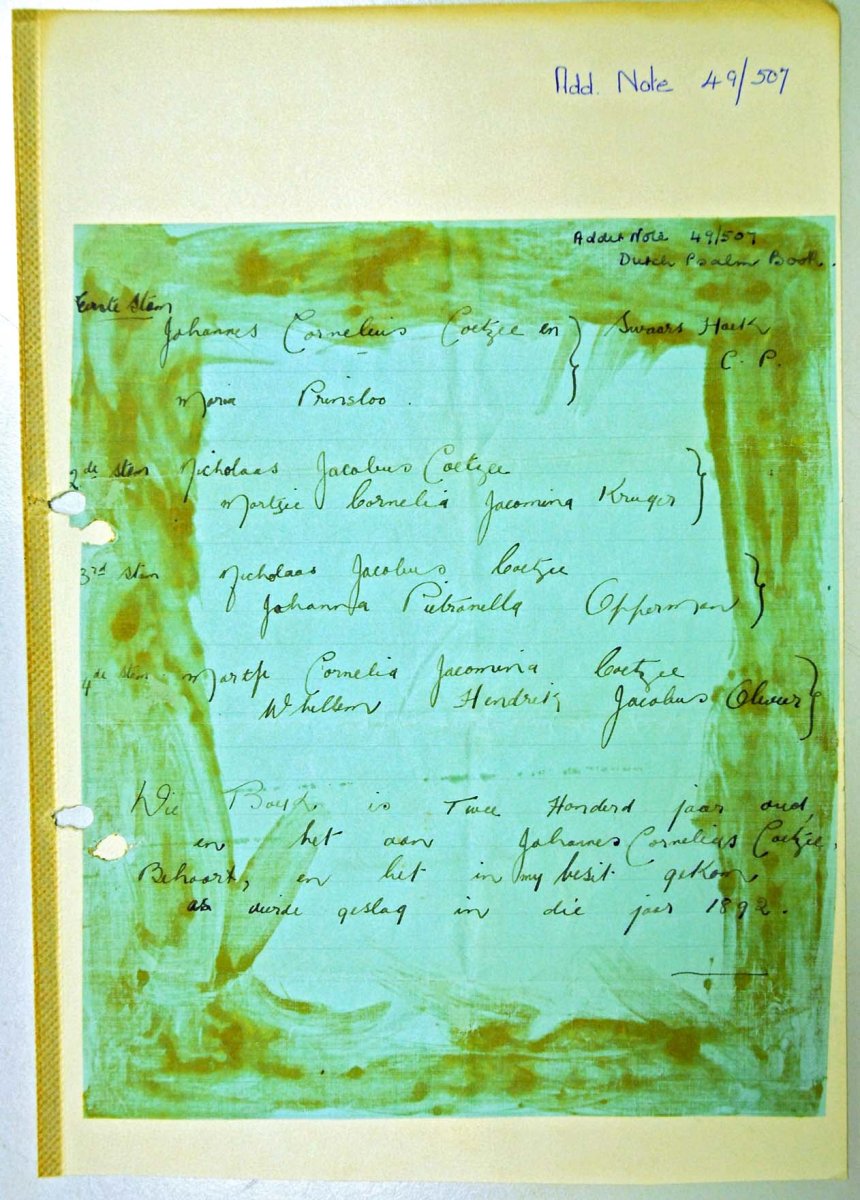 Add. Note 49/507
Addit Note 49/507
Dutch Psalm Book.
Eerste Stam
Johannes Cornelius Coetzee en } Swaars Hoek
C. P.
Maria Prinsloo.
2de stam Nicholaas Jacobus Coetzee
Martzie Cornelia Jacomina Kruger }
3rd stam Nicholaas Jacobus Coetzee
Johanna Pietranella Opperman }
4de stam Cornelia Jacomina Coetzee
Whillem Hendrik Jacobus Olivier }
Die Boek is Twee Honderd jaar oud,
en het aan Johannes Cornelius Coetzee.
Behoort, en het in my besit gekom
as vierde geslag in die jaar 1892.